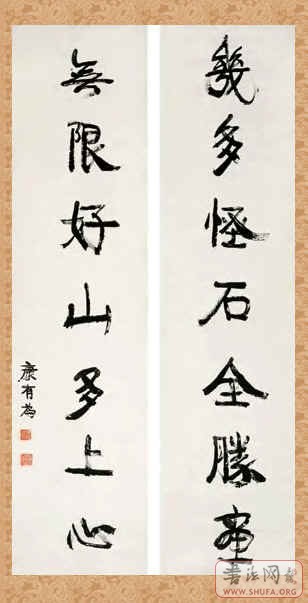 幾多怪石全勝畫
無限好山多上心
康有為
WWW.SHUFA.ORG